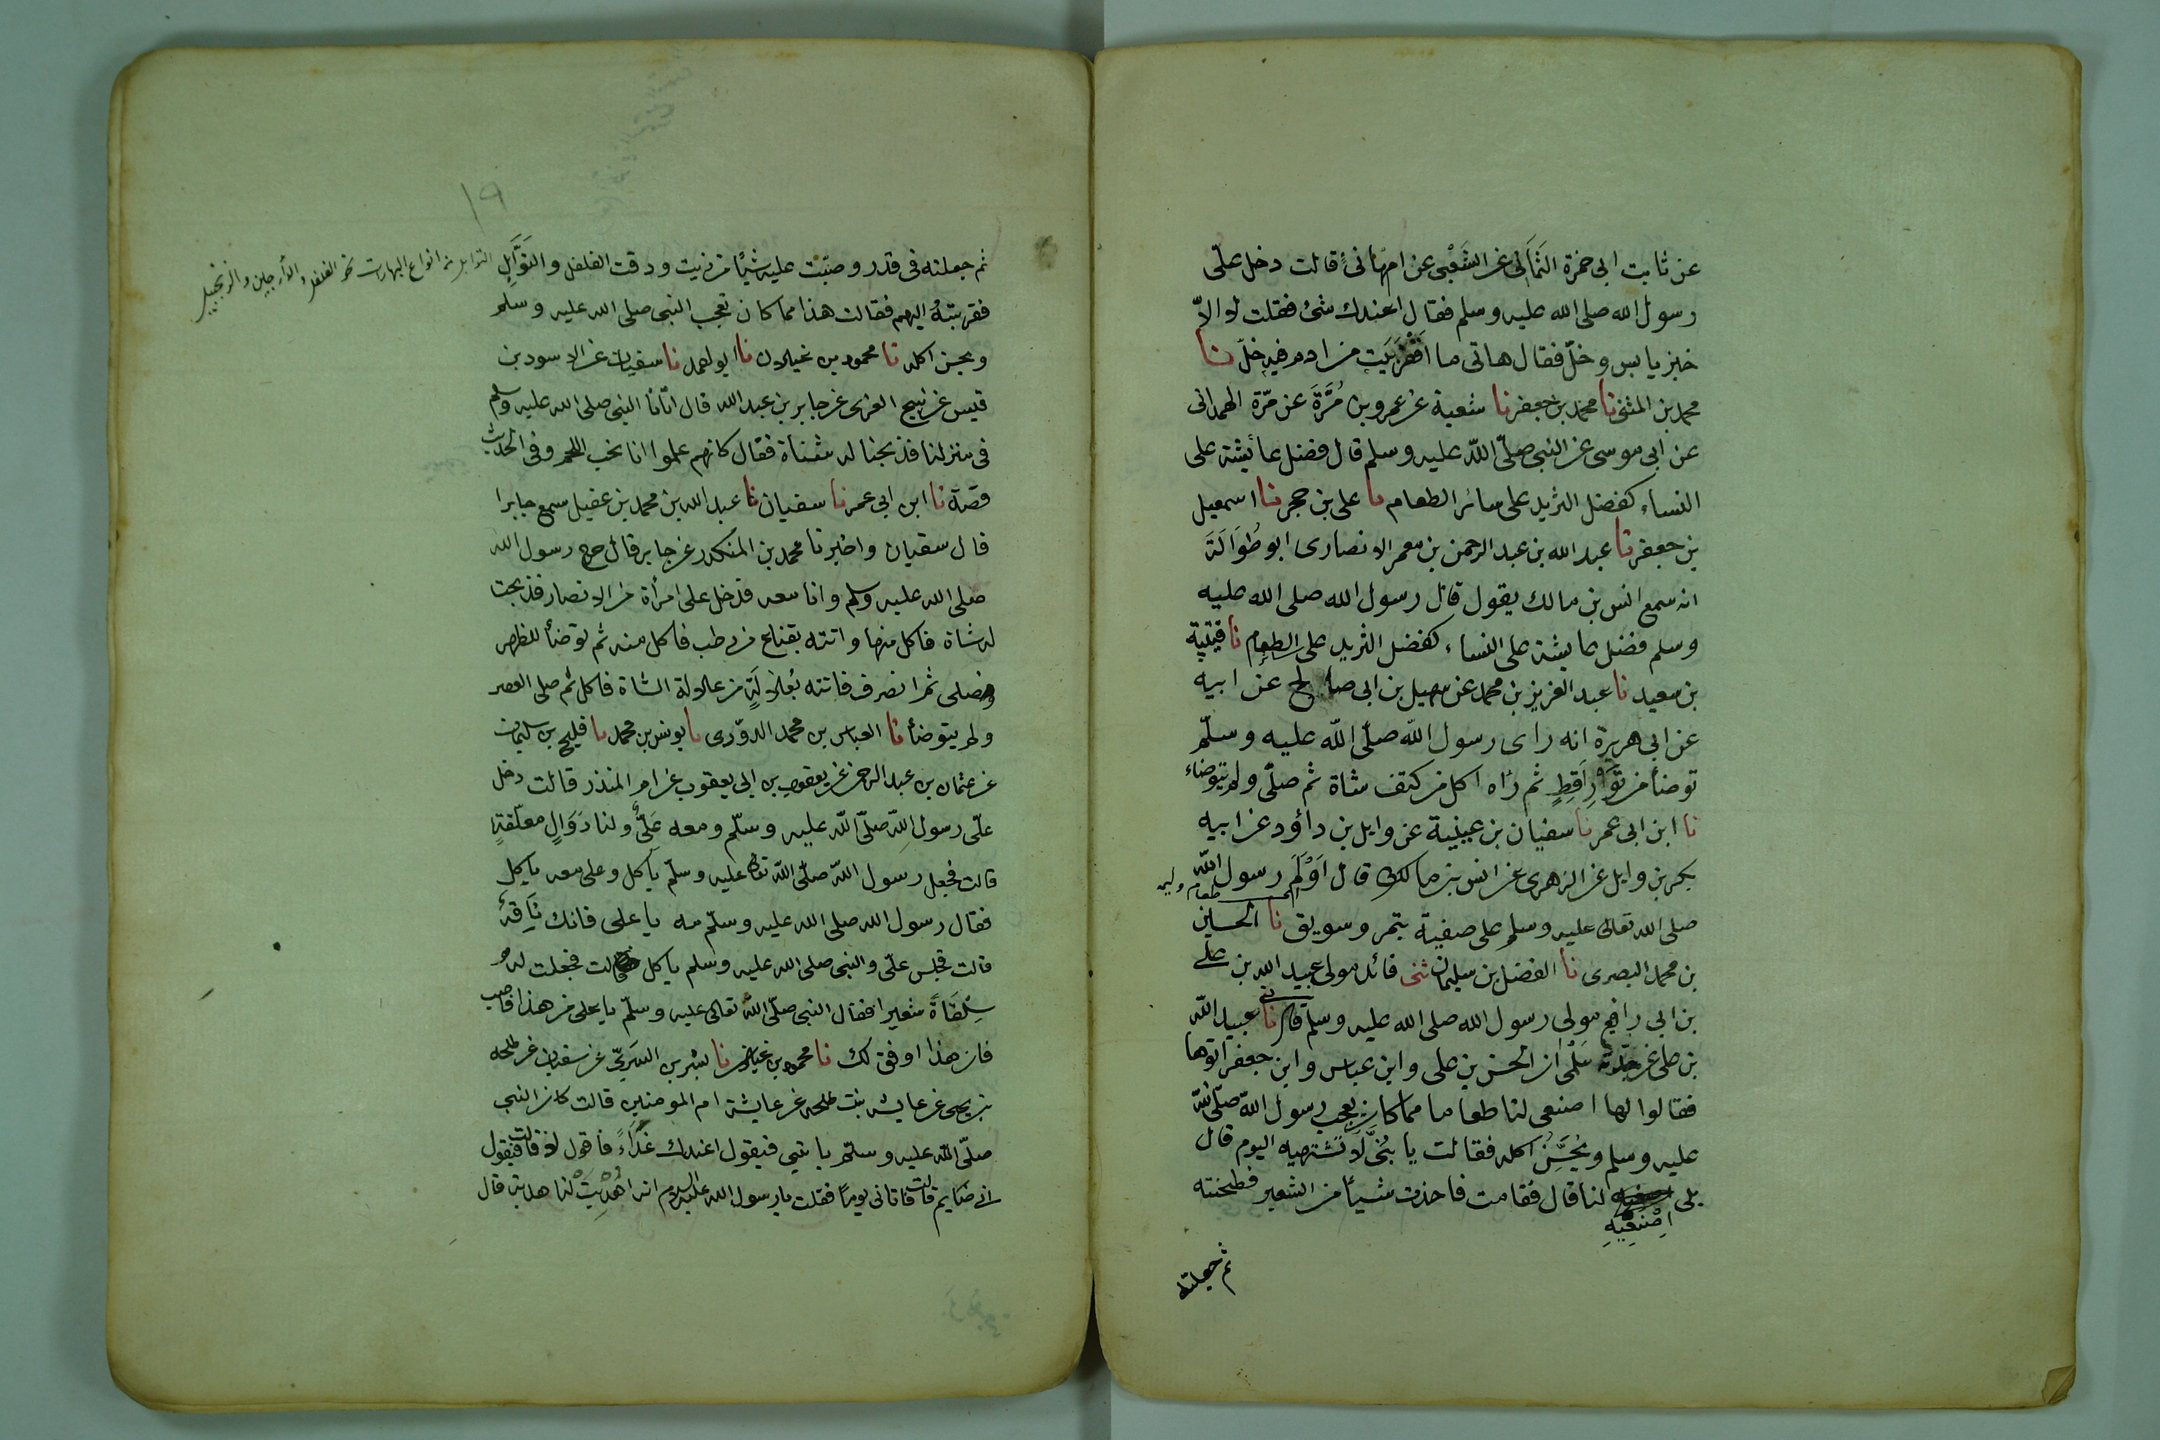 عن ثابت ابى حمزة الثمالى عن الشعبى عن ام هانئ قالت دخل علىّ
رسول الله صلى الله عليه وسلم فقال اعندك شئ فقلت لا الاّ
خبز يابس وخلّ فقال هاتى ما اقفر بيت من ادم فيه خلّ نا
محمد بن المثنى نا محمد بن جعفر نا شعبة عن عمرو بن مُرَّةَ عن مرّة الهمدانى
عن ابى موسى عن النبى صلّى اللّه عليه وسلم قال فضل عائشة على
النساء كفضل الثريد على سائر الطعام نا على بن حجر نا اسمعيل
بن جعفر نا عبد الله بن عبد الرحمن بن معمر الانصارى ابو طُوَالَةَ
انه سمع انس بن مالك يقول قال رسول الله صلى الله عليه
وسلم فضل عايشة على النساء كفضل الثريد على الطعام نا قتيبة
بن سعيد نا عبد العزيز بن محمد عن سهيل بن ابى صالح عن ابيه
عن ابى هريرة انه راى رسول اللّه صلّى اللّه عليه وسلّم
توضأ من ثَوْرِ اَقِطٍ ثم راٰه اكل من كتف شاة ثم صلّى ولم يتوضاء
نا ابن ابى عمر نا سفيان بن عيينة عن وايل بن داؤد عن ابيه
بكر بن وايل عن الزهرى عن انس بن مالك قال اَوْلَمَ رسول اللّه
طعام وليمه
صلى الله تعالى عليه وسلم على صفية بتمر وسويق نا الحسين
بن محمد البصرى نا الفضل بن سليمان ثنى فائد مولى عبيد الله بن على
بن ابى رافع مولى رسول الله صلى الله عليه وسلم قال نا عبيد اللّه
بن على عن جدّته سَلْمٰى ان الحسن بن على وابن عباس وابن جعفر اتوها
فقالوا لها اصنعى لنا طعاما مما كان يعجب رسول اللّه صلّى اللّه
عليه وسلم ويُحَسِّنُ اكله فقالت يا بُنَىَّ لَا تَشْتهيه اليوم قال
بلى لنا قال فقامت فاخذت شيأً من الشعير فطحنته
اِصْنَعِيْهِ
ثم جعلته
١٩
ثم جعلته فى قدر وصبّت عليه شيأً من زيت ودقت الفلفل والتَوَابِل
التوابل من انواع البهارت نحو الفلفل و والزنجبيل
فقربتهُ اليهم فقالت هذا مما كان تعجب النبى صلى الله عليه وسلم
ويحسن اكله نا محمود بن غيلان نا ابو احمد نا سفيان عن الاسود بن
قيس عن نبيح العنزى عن جابر بن عبد الله قال اتانا النبى صلى الله عليه وسلم
فى منزلنا فذبحنا له شاة فقال كانهم علموا انا نحب اللحم وفى الحديث
قصة نا ابن ابى عمر نا سفيان نا عبد الله بن محمد بن عقيل سمع جابرا
قال سفيان واخبرنا محمد بن المنكدر عن جابر قال خرج رسول الله
صلى الله عليه وسلم وانا معه فدخل على امرأة من الانصار فذبحت
له شاة فاكل منها واتته بقناع من رطب فاكل منه ثم توضأ للظهر
وصلى ثم انصرف فاتته بعُلَالَةٍ من علالة الشاة فاكل ثم صلى العصر
ولم يتوضأ نا العباس بن محمد الدوّرى نا يونس بن محمد نا فليح بن سليمان
عن عثمان بن عبد الرحمن عن يعقوب بن ابى يعقوب عن ام المنذر قالت دخل
علّى رسول اللّه صلّى اللّه عليه وسلّم ومعه عَلىٌّ ولنا دَوَالٍ معلّقةٍ
قالت فجعل رسول اللّه صلّى اللّه تعالى عليه وسلّم يأكل وعلى معه يأكل
فقال رسول الله صلى الله عليه وسلّم مه يا على فانك نَاقِهٌ
قالت فجلس علّى والنبى صلى الله عليه وسلم يأكل قالت فجعلت لهم
سِلْقَاً شعيرا فقال النبى صلّى اللّه تعالى عليه وسلّم يا على من هذا فاصب
فان هذا اوفق لك نا محمود بن غيلان نا بشر بن السَرِىّ عن سفيان عن طلحه
بن يحيى عن عايشه بنت طلحه عن عايشة ام المومنين قالت كان النبى
صلّى اللّه عليه وسلّم ياتينى فيقول اعندك غَدَاءٌ فاقول لا قالت فيقول
انى صايم قالت فاتانى يوماً فقلت يا رسول الله عليه السلام انه اُهْدِيَتْ لنا هدية قال